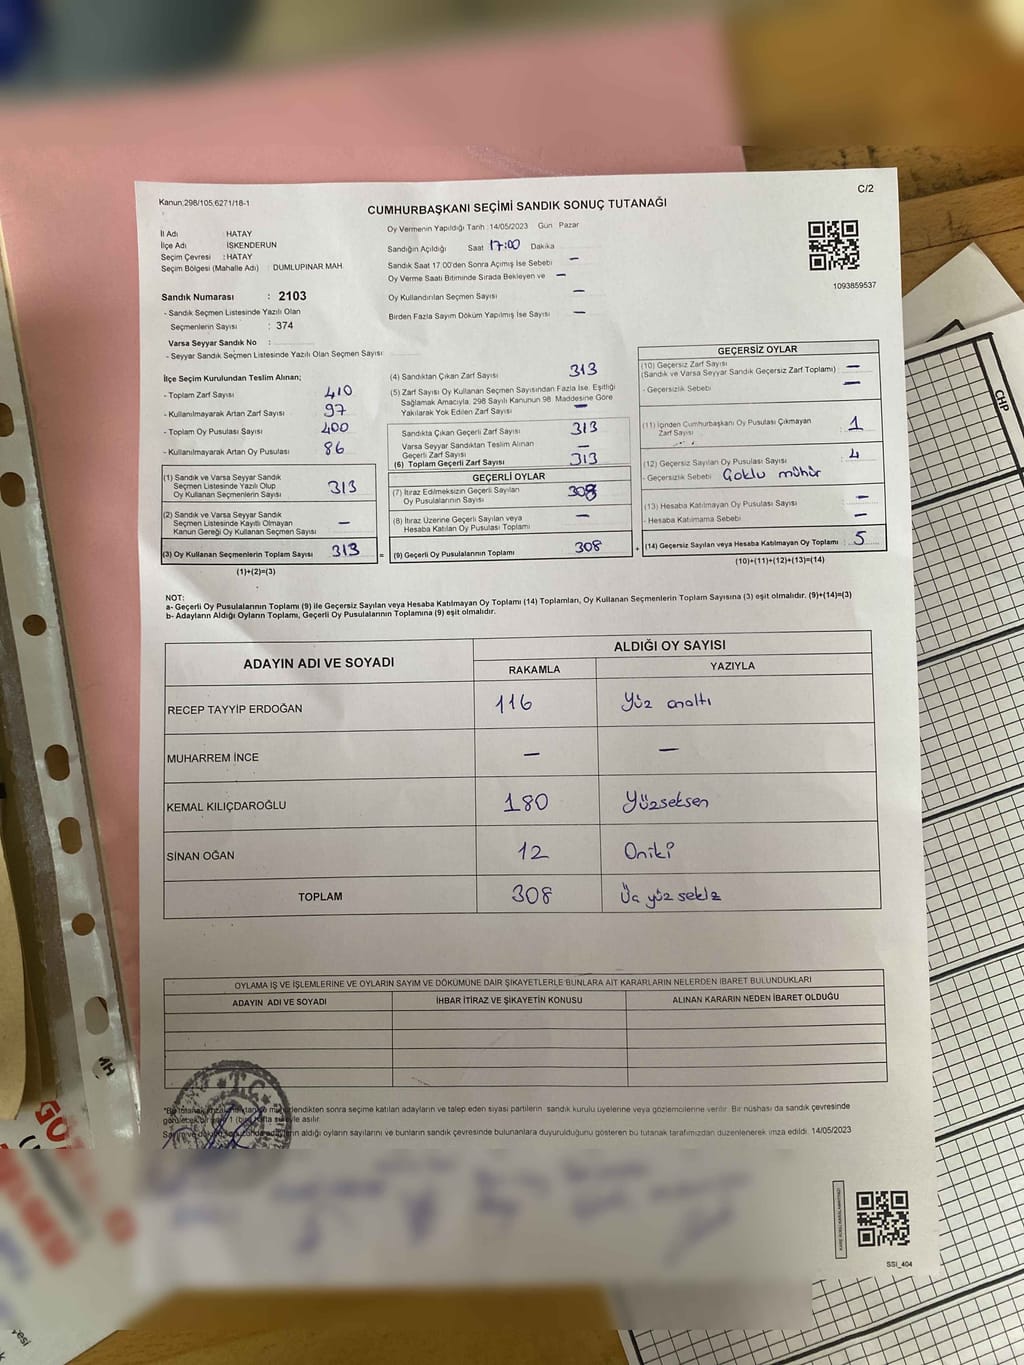 C/2
Kanun,298/105,6271/18-1
CUMHURBAŞKANI SEÇİMİ SANDIK SONUÇ TUTANAĞI
İl Adı HATAY
İlçe Adı İSKENDERUN
Seçim Çevresi : HATAY
Seçim Bölgesi (Mahalle Adı) : DUMLUPINAR MAH
Sandık Numarası : 2103
- Sandık Seçmen Listesinde Yazılı Olan
Seçmenlerin Sayısı : 374
Varsa Seyyar Sandık No :
- Seyyar Sandık Seçmen Listesinde Yazılı Olan Seçmen Sayısı
Oy Vermenin Yapıldığı Tarih : 14/05/2023 Gün Pazar
Sandığın Açıldığı Saat 17:00 Dakika
Sandık Saat 17.00'den Sonra Açımış İse Sebebi —
Oy Verme Saati Bitiminde Sırada Bekleyen ve —
Oy Kullandırılan Seçmen Sayısı —
Birden Fazla Sayım Döküm Yapılmış İse Sayısı —
1093859537
İlçe Seçim Kurulundan Teslim Alınan;
- Toplam Zarf Sayısı 410
- Kullanılmayarak Artan Zarf Sayısı 97
- Toplam Oy Pusulası Sayısı 400
- Kullanılmayarak Artan Oy Pusulası 86
(1) Sandık ve Varsa Seyyar Sandık
Seçmen Listesinde Yazılı Olup
Oy Kullanan Seçmenlerin Sayısı 313
(2) Sandık ve Varsa Seyyar Sandık
Seçmen Listesinde Kayıtlı Olmayan
Kanun Gereği Oy Kullanan Seçmen Sayısı —
(3) Oy Kullanan Seçmenlerin Toplam Sayısı 313 =
(1)+(2)=(3)
(4) Sandıktan Çıkan Zarf Sayısı 313
(5) Zarf Sayısı Oy Kullanan Seçmen Sayısından Fazla İse, Eşitliği
Sağlamak Amacıyla, 298 Sayılı Kanunun 98. Maddesine Göre
Yakılarak Yok Edilen Zarf Sayısı —
Sandıkta Çıkan Geçerli Zarf Sayısı 313
Varsa Seyyar Sandıktan Teslim Alınan
Geçerli Zarf Sayısı —
(6) Toplam Geçerli Zarf Sayısı 313
GEÇERLİ OYLAR
(7) İtiraz Edilmeksizin Geçerli Sayılan
Oy Pusulalarının Sayısı 308
(8) İtiraz Üzerine Geçerli Sayılan veya
Hesaba Katılan Oy Pusulası Toplamı —
(9) Geçerli Oy Pusulalarının Toplamı 308 +
GEÇERSİZ OYLAR
(10) Geçersiz Zarf Sayısı
(Sandık ve Varsa Seyyar Sandık Geçersiz Zarf Toplamı) —
- Geçersizlik Sebebi —
(11) İçinden Cumhurbaşkanı Oy Pusulası Çıkmayan
Zarf Sayısı 1
(12) Geçersiz Sayılan Oy Pusulası Sayısı 4
- Geçersizlik Sebebi Çoklu mühür
(13) Hesaba Katılmayan Oy Pusulası Sayısı —
- Hesaba Katılmama Sebebi —
(14) Geçersiz Sayılan veya Hesaba Katılmayan Oy Toplamı : 5
(10)+(11)+(12)+(13)=(14)
NOT:
a- Geçerli Oy Pusulalarının Toplamı (9) ile Geçersiz Sayılan veya Hesaba Katılmayan Oy Toplamı (14) Toplamları, Oy Kullanan Seçmenlerin Toplam Sayısına (3) eşit olmalıdır. (9)+(14)=(3)
b- Adayların Aldığı Oyların Toplamı, Geçerli Oy Pusulalarının Toplamına (9) eşit olmalıdır.
ADAYIN ADI VE SOYADI ALDIĞI OY SAYISI
RAKAMLA YAZIYLA
RECEP TAYYİP ERDOĞAN 116 Yüz onaltı
MUHARREM İNCE — —
KEMAL KILIÇDAROĞLU 180 Yüzseksen
SİNAN OĞAN 12 Oniki
TOPLAM 308 Üç yüz sekiz
OYLAMA İŞ VE İŞLEMLERİNE VE OYLARIN SAYIM VE DÖKÜMÜNE DAİR ŞİKAYETLERLE BUNLARA AİT KARARLARIN NELERDEN İBARET BULUNDUKLARI
ADAYIN ADI VE SOYADI İHBAR İTİRAZ VE ŞİKAYETİN KONUSU ALINAN KARARIN NEDEN İBARET OLDUĞU
T.C.
mühürlendikten sonra seçime katılan adayların ve talep eden siyasi partilerin sandık kurulu üyelerine veya gözlemcilerine verilir. Bir nüshası da sandık çevresinde
1 (bir) hafta süreyle asılır.
aldığı oyların sayılarını ve bunların sandık çevresinde bulunanlara duyurulduğunu gösteren bu tutanak tarafımızdan düzenlenerek imza edildi. 14/05/2023
SSI_404
CHP